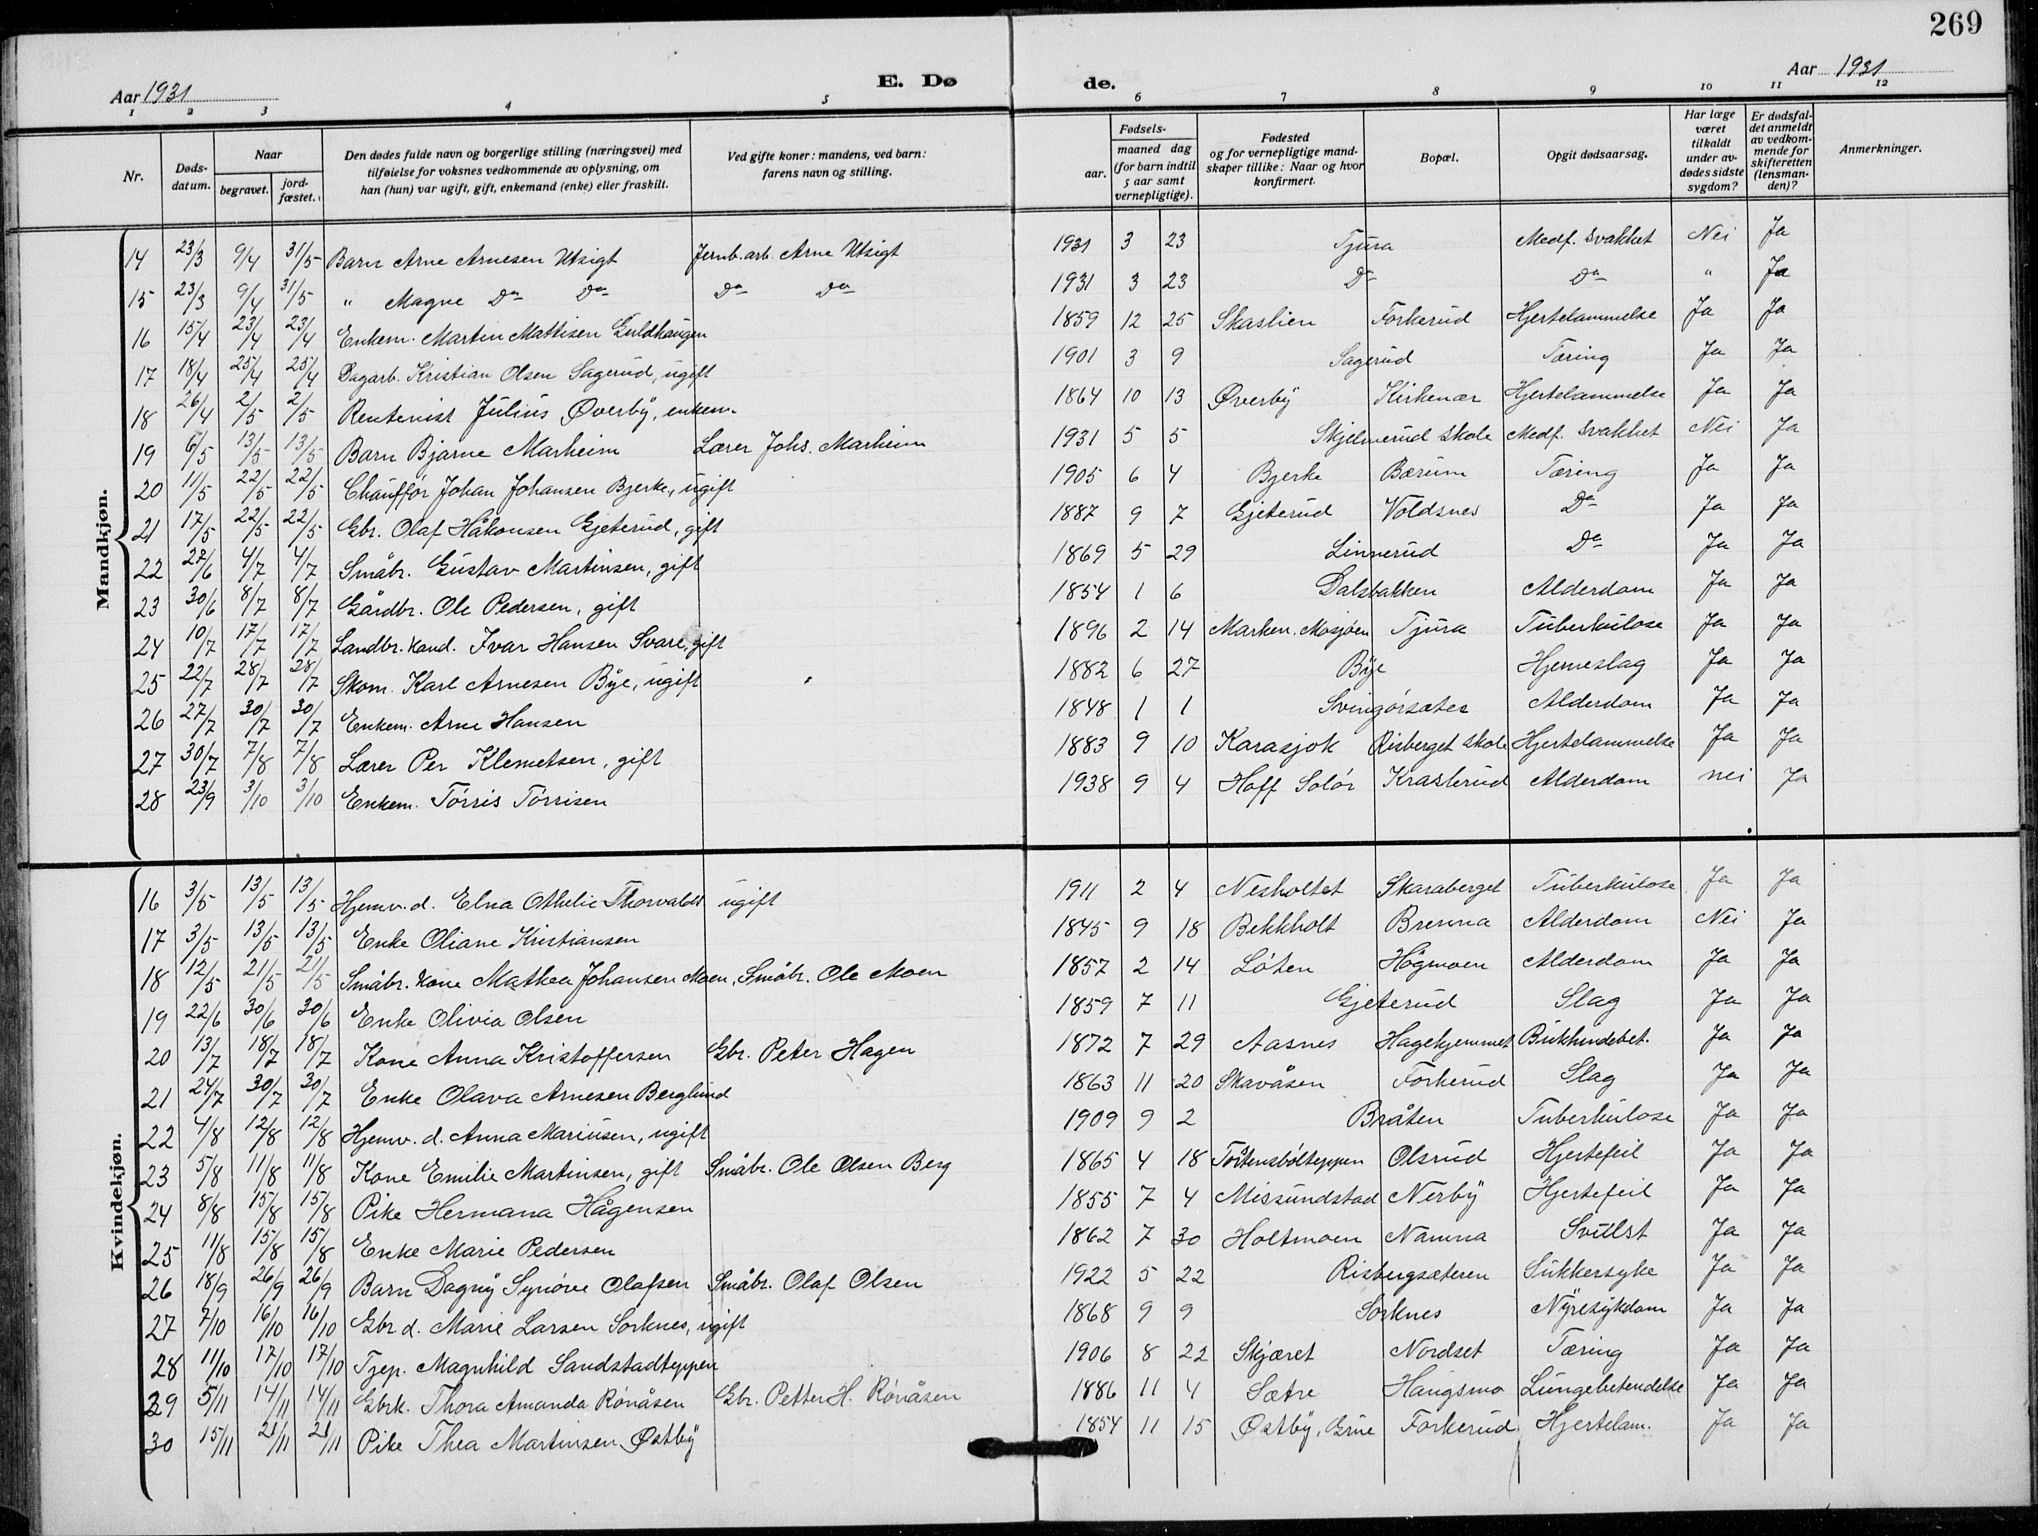 269
Aar 1931
E. Dø
de.
Aar 1931
1 2 3 4 5 6 7 8 9 10 11 12
Nr.
Døds-
datum.
Naar
begravet.
jord-
fæstet.
Den dødes fulde navn og borgerlige stilling (næringsvei) med
tilføielse for voksnes vedkommende av oplysning, om
han (hun) var ugift, gift, enkemand (enke) eller fraskilt.
Ved gifte koner: mandens, ved barn:
farens navn og stilling.
Fødsels-
aar.
maaned dag
(for barn indtil
5 aar samt
vernepligtige).
Fødested
og for vernepligtige mand-
skaper tillike: Naar og hvor
konfirmert.
Bopæl.
Opgit dødsaarsag.
Har læge
været
tilkaldt
under av-
dødes sidste
sygdom?
Er dødsfal-
det anmeldt
av vedkom-
mende for
skifteretten
(lensman-
den)?
Anmerkninger.
Mandkjøn.
14 23/3 9/4 31/5 Barn Arne Arnesen Utsigt Jernb.arb. Arne Utsigt 1931 3 23 Tjura Medf. svakhet Nei Ja
15 23/3 9/4 31/5 " Magne Do Do Do Do 1931 3 23 Do Do " Ja
16 15/4 23/4 23/4 Enkem. Martin Mattisen Guldhaugen 1859 12 25 Skaslien Forkerud Hjertelammelse Ja Ja
17 18/4 25/4 25/4 Dagarb. Kristian Olsen Sagerud, ugift 1901 3 9 Sagerud Tæring Ja Ja
18 26/4 2/5 2/5 Rentenist Julius Øverby, enkem. 1864 10 13 Øverby Kirkenær Hjertelammelse Ja Ja
19 6/5 13/5 13/5 Barn Bjarne Marheim Lærer Johs. Marheim 1931 5 5 Skjelnerud skole Medf. svakhet Nei Ja
20 11/5 22/5 22/5 Chauffør Johan Johansen Bjerke, ugift 1905 6 4 Bjerke Bærum Tæring Ja Ja
21 17/5 22/5 22/5 Gbr. Olaf Håkonsen Gjeterud, gift 1887 9 7 Gjeterud Voldsnes Do Ja Ja
22 27/6 4/7 4/7 Småbr. Gustav Martinsen, gift 1869 5 29 Linnerud Do Ja Ja
23 30/6 8/7 8/7 Gårdbr. Ole Pedersen, gift 1854 1 6 Dalsbakken Alderdom Ja Ja
24 10/7 17/7 17/7 Landbr. kand. Ivar Hansen Svare, gift 1896 2 14 Marken. Mosjøen Tjura Tuberkulose Ja Ja
25 22/7 28/7 28/7 Skom. Karl Arnesen Bye, ugift 1882 6 27 Bye Hjerneslag Ja Ja
26 27/7 30/7 30/7 Enkem. Arne Hansen 1848 1 1 Svingørsæter Alderdom Ja Ja
27 30/7 7/8 7/8 Lærer Per Klemetsen, gift 1883 9 10 Karasjok Risberget skole Hjertelammelse Ja Ja
28 23/9 3/10 3/10 Enkem. Tørris Tørrisen 1938 9 4 Hoff Solør Krasterud Alderdom nei Ja
Kvindekjøn.
16 3/5 13/5 13/5 Hjemv. d. Elna Othelie Thorvalds ugift 1911 2 4 Nesholtet Skaraberget Tuberkulose Ja Ja
17 3/5 13/5 13/5 Enke Oliane Kristiansen 1845 9 18 Bekkholt Brenna Alderdom Nei Ja
18 12/5 21/5 21/5 Småbr. kone Mathea Johansen Moen, Småbr. Ole Moen 1857 2 14 Løten Høgmoen Alderdom Ja Ja
19 22/6 30/6 30/6 Enke Olivia Olsen 1859 7 11 Gjeterud Slag Ja Ja
20 13/7 18/7 18/7 Kone Anna Kristoffersen Gbr. Peter Hagen 1872 7 29 Aasnes Hagehjemmet Bukhindebet. Ja Ja
21 24/7 30/7 30/7 Enke Olava Arnesen Berglund 1863 11 20 Skavåsen Forkerud Slag Ja Ja
22 4/8 12/8 12/8 Hjemv. d. Anna Mariusen, ugift 1909 9 2 Bråten Tuberkulose Ja Ja
23 5/8 11/8 11/8 Kone Emilie Martinsen, gift Småbr. Ole Olsen Berg 1865 4 18 Olsrud Hjertefeil Ja Ja
24 8/8 15/8 15/8 Pike Hermana Hågensen 1855 7 4 Missundstad Nerby Hjertefeil Ja Ja
25 11/8 15/8 15/8 Enke Marie Pedersen 1862 7 30 Holtmoen Namna Svulst Ja Ja
26 18/9 26/9 26/9 Barn Dagny Synøve Olafsen Småbr. Olaf Olsen 1922 5 22 Risbergsæteren Sukkersyke Ja Ja
27 7/10 16/10 16/10 Gbr d. Marie Larsen Sorknes, ugift 1868 9 9 Sorknes Nyresykdom Ja Ja
28 11/10 17/10 17/10 Tjep. Magnhild Sandstadteppen 1906 8 22 Skjæret Nordset Tæring Ja Ja
29 5/11 14/11 14/11 Gbrk. Thora Amanda Rønåsen Gbr. Petter H. Rønåsen 1886 11 4 Sætre Haugsmo Lungebetendelse Ja Ja
30 15/11 21/11 21/11 Pike Thea Martinsen Østby 1854 11 15 Østby, Brue Forkerud Hjertelam. Ja Ja